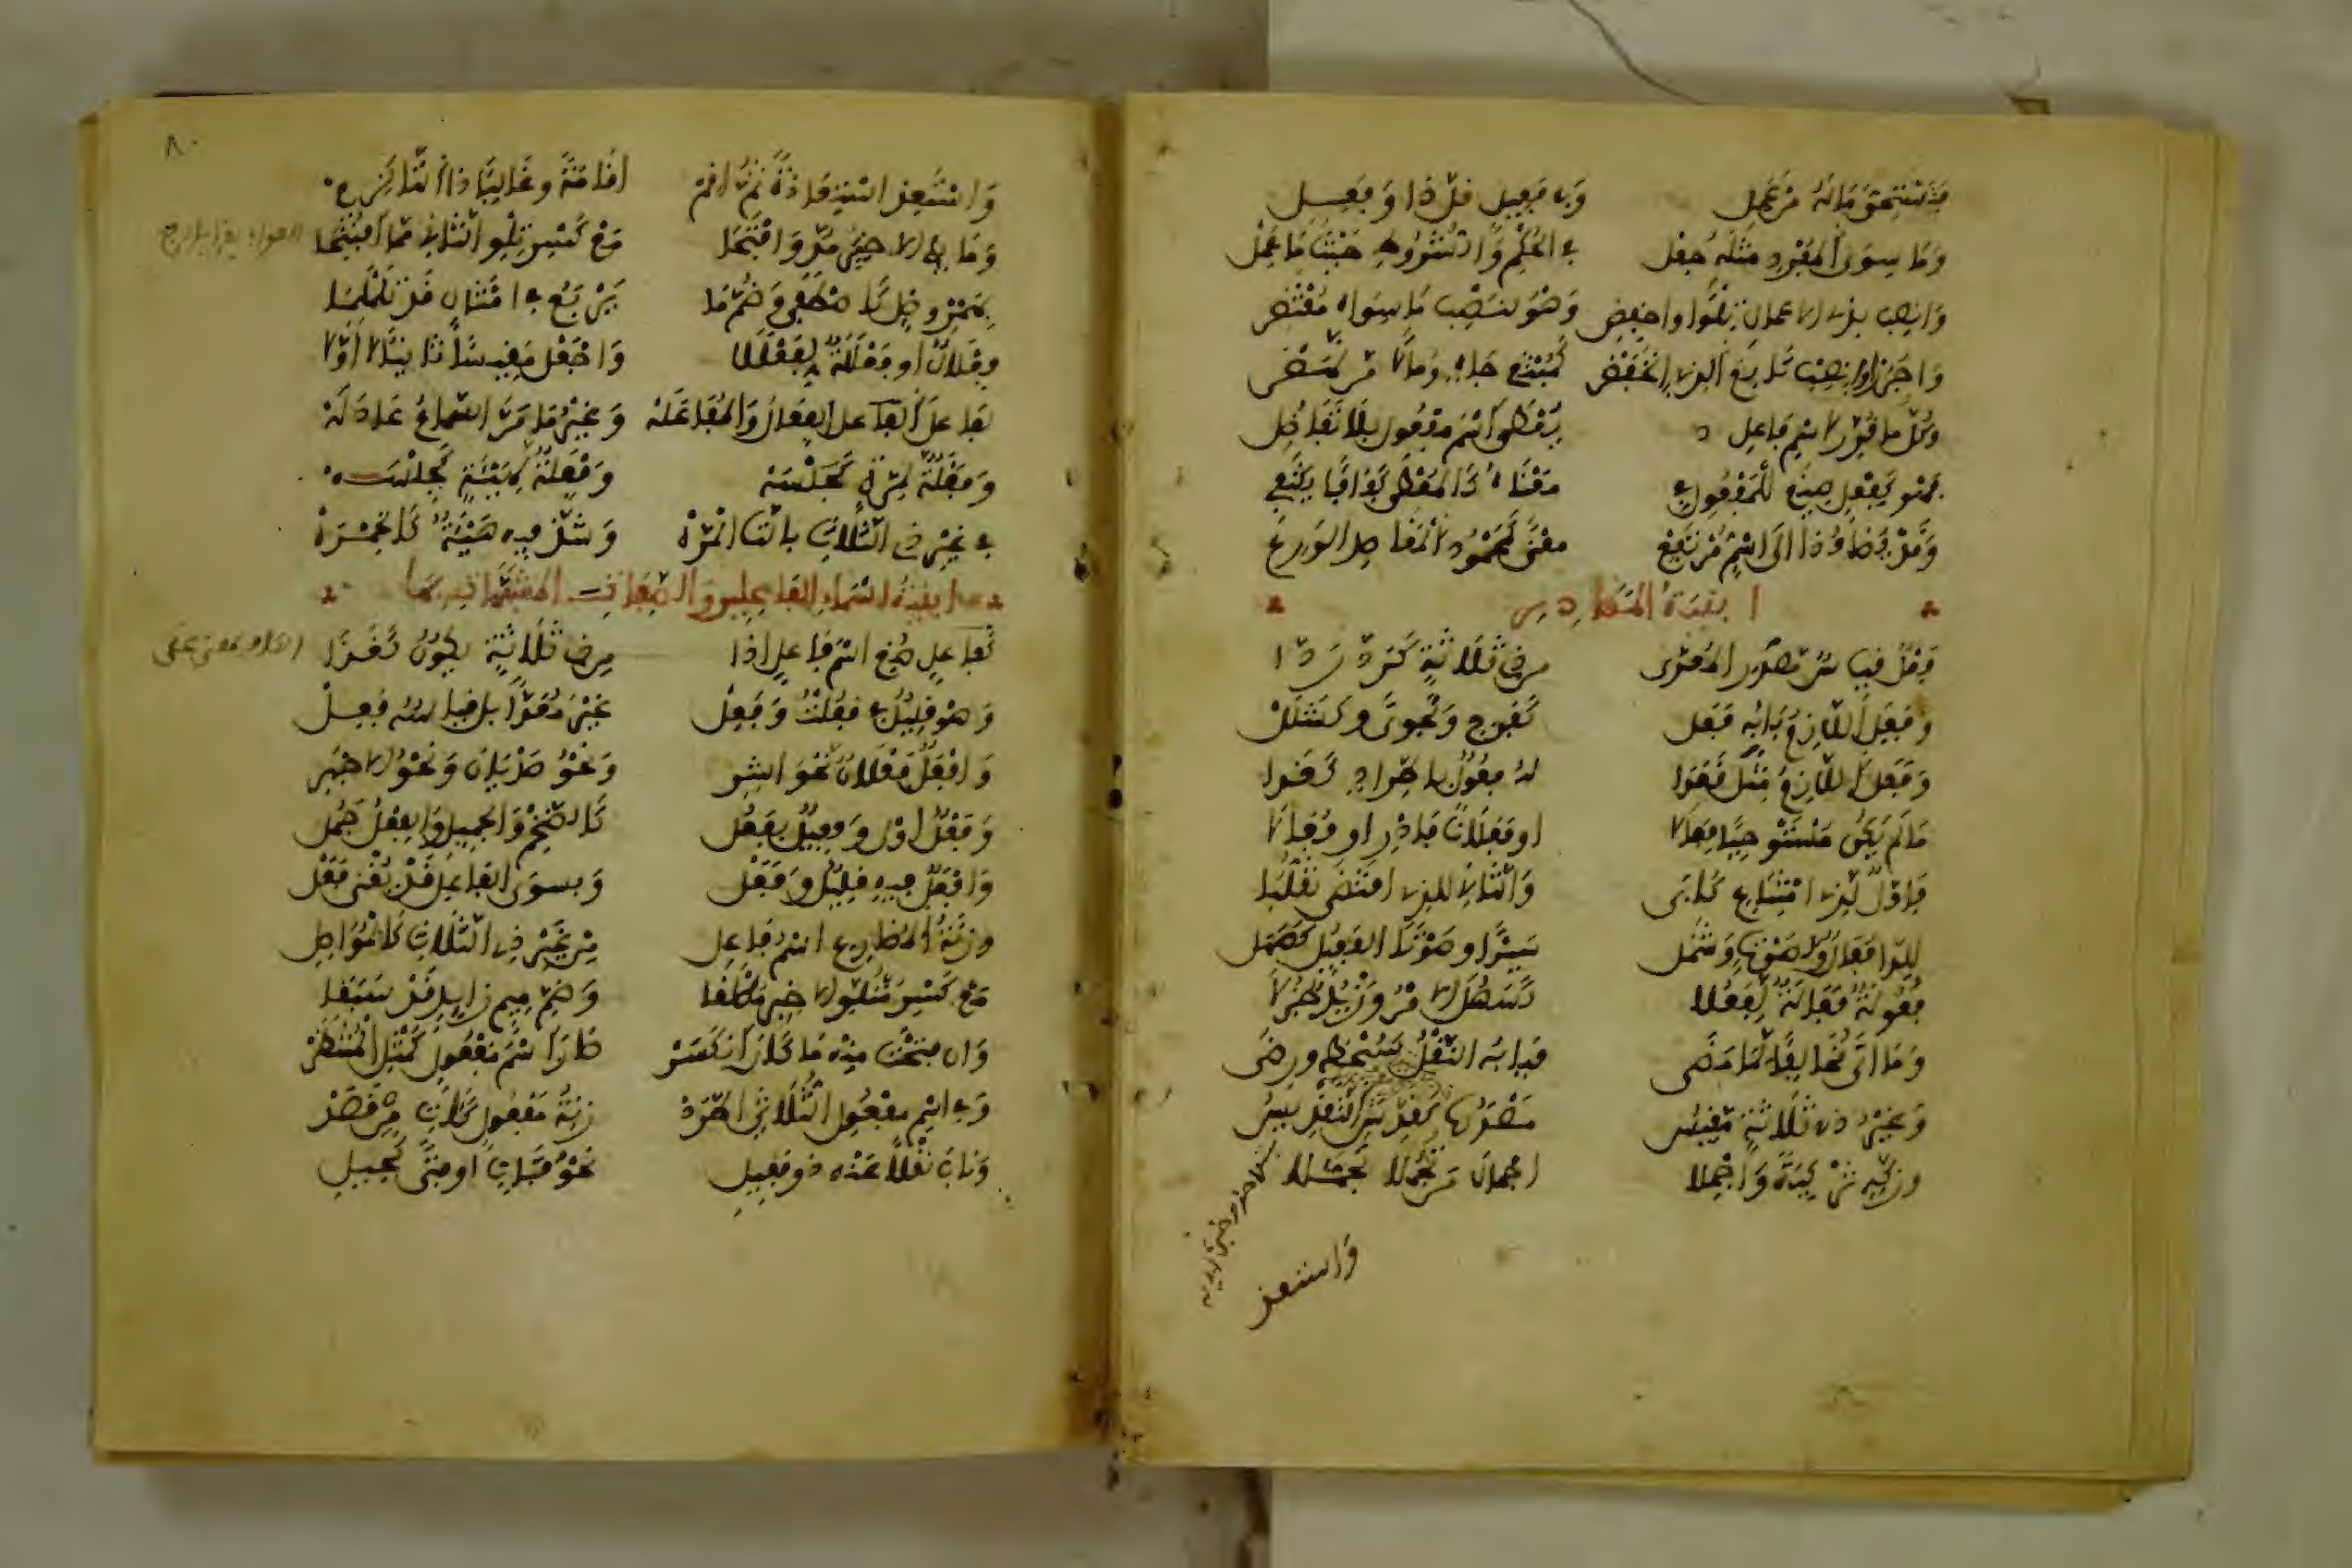 فَيَسْتَحِقُّ مَا لَهُ مِنْ عَمَلِ وَفِي فَعِيلٍ قَلَّ ذَا وَفَعِلِ
وَمَا سِوَى الْمُفْرَدِ مِثْلَهُ جُعِلْ فِي الْحُكْمِ وَالشُّرُوطِ حَيْثُمَا عَمِلْ
وَانْصِبْ بِذِي الاعْمَالِ تِلْوًا وَاخْفِضِ وَهْوَ لِنَصْبِ مَا سِوَاهُ مُقْتَضِي
وَاجْرُرْ أَوِ انْصِبْ تَابِعَ الَّذِي انْخَفَضْ كَمُبْتَغِي جَاهٍ وَمَالًا مَنْ نَهَضْ
وَكُلُّ مَا قُرِّرَ لِاسْمِ فَاعِلِ يُعْطَى اسْمَ مَفْعُولٍ بِلَا تَفَاضُلِ
فَهْوَ كَفِعْلٍ صِيغَ لِلْمَفْعُولِ فِي مَعْنَاهُ كَالْمُعْطَى كَفَافًا يَكْتَفِي
وَقَدْ يُضَافُ ذَا إِلَى اسْمٍ مُرْتَفِعْ مَعْنًى كَمَحْمُودُ الْمَقَاصِدِ الْوَرِعْ
ابنية المصادر
فَعْلٌ قِيَاسُ مَصْدَرِ الْمُعَدَّى مِنْ ذِي ثَلَاثَةٍ كَرَدَّ رَدَّا
وَفَعِلَ اللَّازِمُ بَابُهُ فَعَلْ كَفَرَحٍ وَكَجَوًى وَكَشَلَلْ
وَفَعَلَ اللَّازِمُ مِثْلَ قَعَدَا لَهُ فُعُولٌ بِاطِّرَادٍ كَغَدَا
مَا لَمْ يَكُنْ مُسْتَوْجِبًا فِعَالَا أَوْ فَعَلَانًا فَادْرِ أَوْ فُعَالَا
فَأَوَّلٌ لِذِي امْتِنَاعٍ كَأَبَى وَالثَّانِ لِلَّذِي اقْتَضَى تَقَلُّبَا
لِلدَّا فُعَالٌ أَوْ لِصَوْتٍ وَشَمَلْ سَيْرًا وَصَوْتًا الْفَعِيلُ كَصَهَلْ
فُعُولَةٌ فَعَالَةٌ لِفَعُلَا كَسَهُلَ الامْرُ وَزَيْدٌ جَزُلَا
وَمَا أَتَى مُخَالِفًا لِمَا مَضَى فَبَابُهُ النَّقْلُ كَسُخْطٍ وَرِضَى
وَغَيْرُ ذِي ثَلَاثَةٍ مَقِيسُ مَصْدَرُهَا كَقُدِّسَ التَّقْدِيسُ
وَزَكِّهِ تَزْكِيَةً وَأَجْمِلَا إِجْمَالَ مَنْ تَجَمُّلًا تَجَمَّلَا
وَاسْتَعِذِ
وَاسْتَعِذِ اسْتِعَاذَةً ثُمَّ أَقِمْ إِقَامَةً وَغَالِبًا ذَا التَّا لَزِمْ
وَمَا يَلِي الاخِيرُ مُدَّ وَافْتَحَا مَعْ كَسْرِ تِلْوِ الثَّانِ مِمَّا افْتُتِحَا
بِهَمْزِ وَصْلٍ كَاصْطَفَى وَضُمَّ مَا يَرْبَعُ فِي أَمْثَالِ قَدْ تَلَمْلَمَا
فِعْلَالٌ أَوْ فَعْلَلَةٌ لِفَعْلَلَا وَاجْعَلْ مَقِيسًا ثَانِيًا لَا أَوَّلَا
لِفَاعَلَ الْفِعَالُ وَالْمُفَاعَلَهْ وَغَيْرُ مَا مَرَّ السَّمَاعُ عَادَلَهْ
وَفَعْلَةٌ لِمَرَّةٍ كَجَلْسَهْ وَفِعْلَةٌ لِهَيْئَةٍ كَجِلْسَهْ
فِي غَيْرِ ذِي الثَّلَاثِ بِالتَّا الْمَرَّهْ وَشَذَّ فِيهِ هَيْئَةٌ كَالْخِمْرَهْ
ابنية اسماء الفاعلين والصفات المشبهات بها
كَفَاعِلٍ صُغِ اسْمَ فَاعِلٍ إِذَا مِنْ ذِي ثَلَاثَةٍ يَكُونُ كَغَذَا
وَهْوَ قَلِيلٌ فِي فَعُلْتُ وَفَعِلْ غَيْرَ مُعَدًّى بَلْ قِيَاسُهُ فَعِلْ
وَأَفْعَلٌ فَعْلَانُ نَحْوُ أَشِرِ وَنَحْوُ صَدْيَانَ وَنَحْوُ الاجْهَرِ
وَفَعْلٌ أَوْلَى وَفَعِيلٌ بِفَعُلْ كَالضَّخْمِ وَالْجَمِيلِ وَالْفِعْلُ جَمُلْ
وَأَفْعَلٌ فِيهِ قَلِيلٌ وَفَعَلْ وَبِسِوَى الْفَاعِلِ قَدْ يَغْنَى فَعَلْ
وَزِنَةُ الْمُضَارِعِ اسْمُ فَاعِلِ مِنْ غَيْرِ ذِي الثَّلَاثِ كَالْمُوَاصِلِ
مَعْ كَسْرِ مَتْلُوِّ الاخِيرِ مُطْلَقَا وَضَمِّ مِيمٍ زَائِدٍ قَدْ سَبَقَا
وَإِنْ فَتَحْتَ مِنْهُ مَا كَانَ انْكَسَرْ صَارَ اسْمَ مَفْعُولٍ كَمِثْلِ الْمُنْتَظَرْ
وَفِي اسْمِ مَفْعُولِ الثُّلَاثِيِّ اطَّرَدْ زِنَةُ مَفْعُولٍ كَآتٍ مِنْ قَصَدْ
وَنَابَ نَقْلًا عَنْهُ ذُو فَعِيلِ نَحْوُ فَتَاةٍ أَوْ فَتًى كَحِيلِ